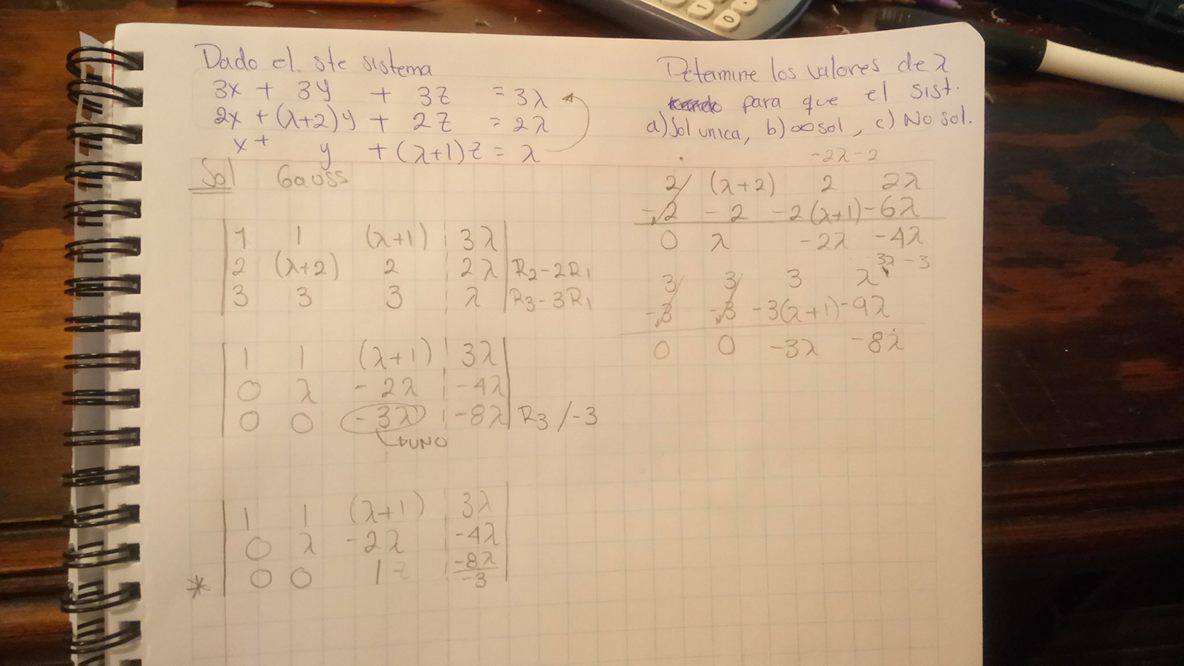 Dado el ste sistema
3x + 3y + 3z = 3λ
2x + (λ+2)y + 2z = 2λ
x + y + (λ+1)z = λ
Determine los valores de λ
para que el sist.
a) Sol unica, b) ∞ sol, c) No sol.
Sol Gauss
1 1 (λ+1) 3λ
2 (λ+2) 2 2λ R2-2R1
3 3 3 λ R3-3R1
1 1 (λ+1) 3λ
0 λ -2λ -4λ
0 0 -3λ -8λ R3/-3
UNO
1 1 (λ+1) 3λ
0 λ -2λ -4λ
* 0 0 1z -8λ/-3
-2λ-2
2 (λ+2) 2 2λ
-2 -2 -2(λ+1) -6λ
0 λ -2λ -4λ
3λ-3
3 3 3 λ
-3 -3 -3(λ+1) -9λ
0 0 -3λ -8λ